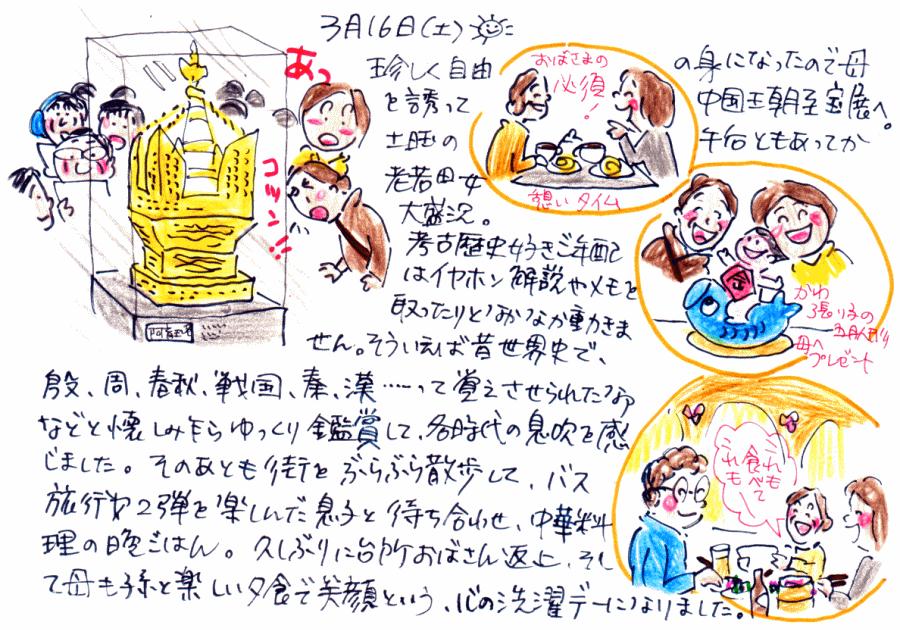 3月16日(土)
珍しく自由
の身になったので母
を誘って
中国王朝至宝展へ。
土曜の
午后ともあってか
老若男女
大盛況。
考古歴史好きご年配
はイヤホン解説やメモを
取ったりとなかなか動きま
せん。そういえば昔世界史で、
殷、周、春秋、戦国、秦、漢……って覚えさせられたなぁ
などと懐しみ乍らゆっくり鑑賞して、各時代の息吹を感
じました。そのあとも街をぶらぶら散歩して、バス
旅行第2弾を楽しんだ息子と待ち合わせ、中華料
理の晩ごはん。久しぶりに台所おばさん返上、そし
て母も孫と楽しい夕食で笑顔という、心の洗濯デーになりました。
あっ
コツン!!
おばさまの
必須!
憩いタイム
かわいい
張り子の
五月人形
母へ
プレゼント
これも
食べて
これも